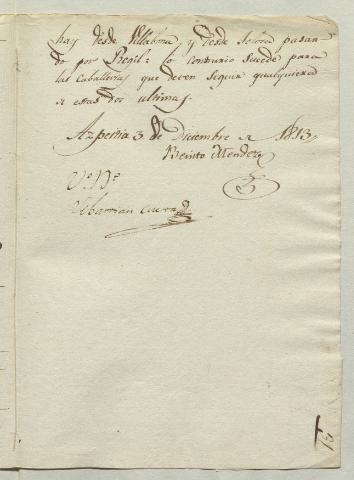 hay desde Villabona, y desde Tolosa pasan
do por Regil: lo contrario sucede para
las Caballerias que deven seguir qualquiera
de estas dos ultimas.
Azpeitia 3 de Diciembre de 1813,
Benito Mendez
Vº Bº
Sebastian